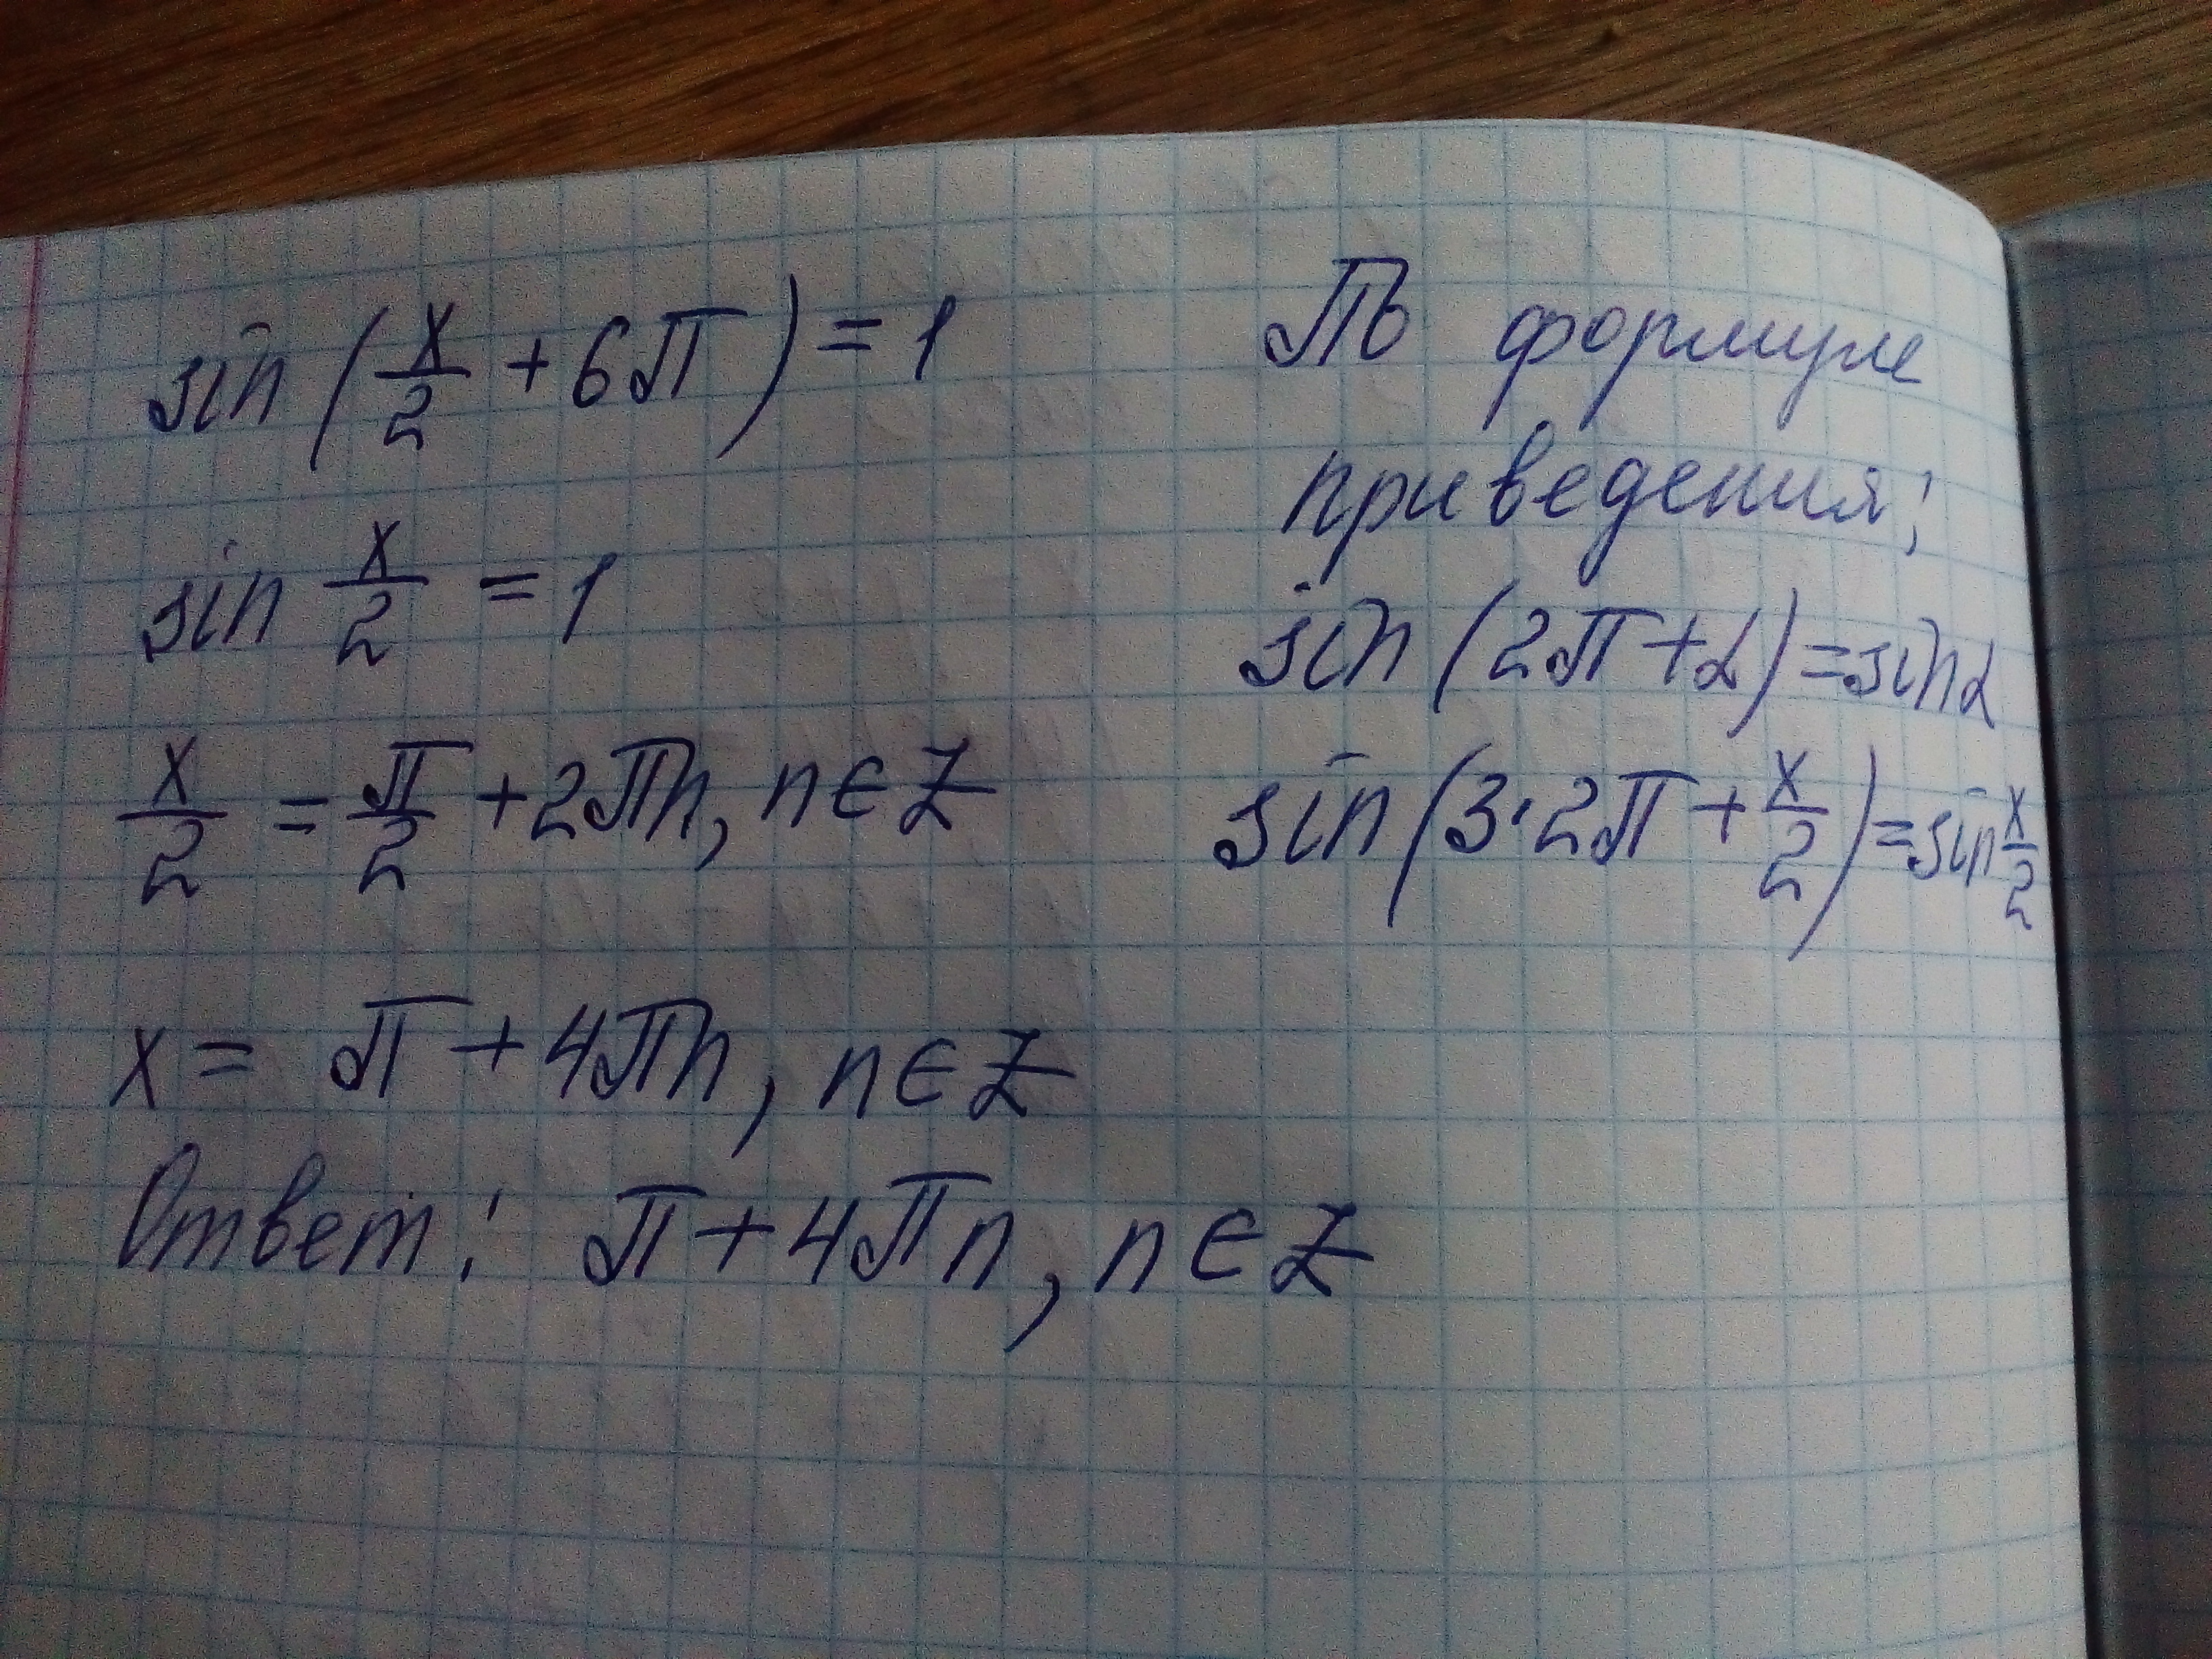 sin(x/2 + 6π) = 1
sin x/2 = 1
x/2 = π/2 + 2πn, n ∈ Z
x = π + 4πn, n ∈ Z
Ответ: π + 4πn, n ∈ Z
По формуле
приведения:
sin(2π + α) = sin α
sin(3·2π + x/2) = sin x/2